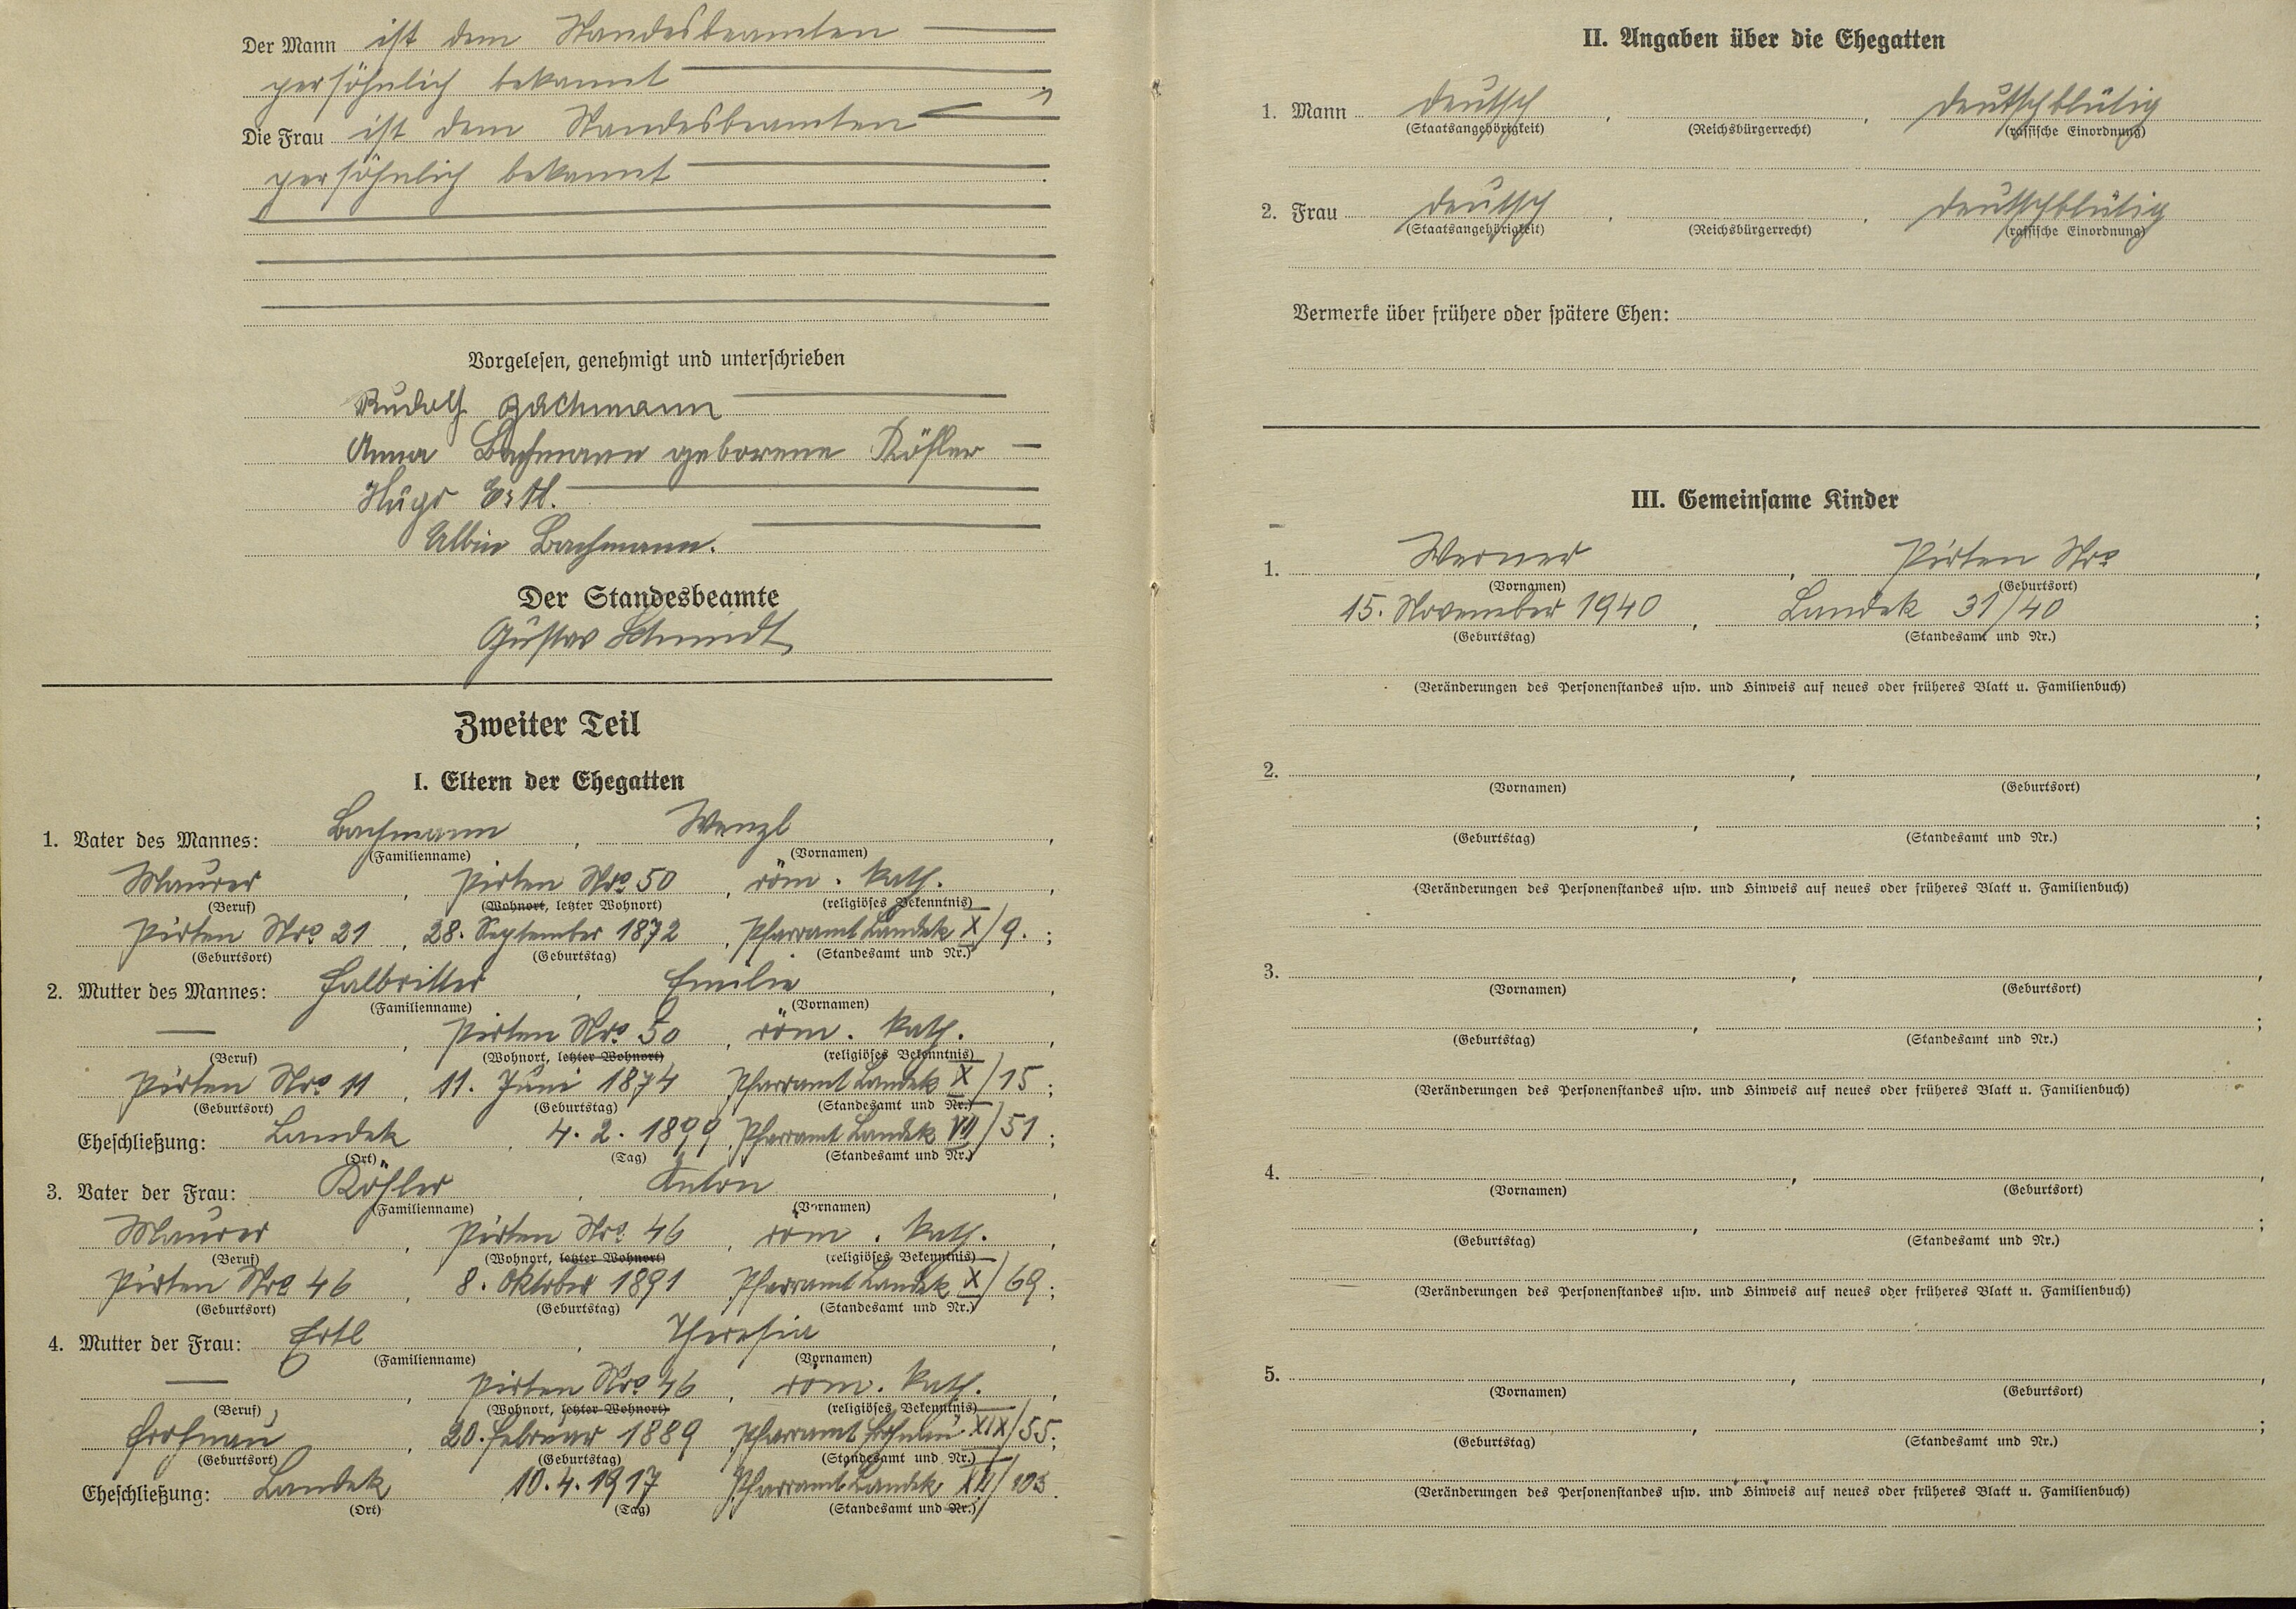 Der Mann ist dem Standesbeamten
persöhnlich bekannt
Die Frau ist dem Standesbeamten
persöhnlich bekannt
Vorgelesen, genehmigt und unterschrieben
Rudolf Bachmann
Anna Bachmann geborene Köhler
Hugo Ertl.
Albin Bachmann.
Der Standesbeamte
Gustav Schmidt
Zweiter Teil
I. Eltern der Ehegatten
1. Vater des Mannes: Bachmann, Wenzl,
(Familienname) (Vornamen)
Maurer, Pirten Nro 50, röm. kath.,
(Beruf) (Wohnort, letzter Wohnort) (religiöses Bekenntnis)
Pirten Nro 21, 28. September 1872, Pfarramt Landek X/9.;
(Geburtsort) (Geburtstag) (Standesamt und Nr.)
2. Mutter des Mannes: Halbritter, Emilie,
(Familienname) (Vornamen)
—, Pirten Nro 50, röm. kath.,
(Beruf) (Wohnort, letzter Wohnort) (religiöses Bekenntnis)
Pirten Nro 11, 11. Juni 1874, Pfarramt Landek X/15;
(Geburtsort) (Geburtstag) (Standesamt und Nr.)
Eheschließung: Landek, 4. 2. 1899, Pfarramt Landek VII/51;
(Ort) (Tag) (Standesamt und Nr.)
3. Vater der Frau: Köhler, Anton,
(Familienname) (Vornamen)
Maurer, Pirten Nro 46, röm. kath.,
(Beruf) (Wohnort, letzter Wohnort) (religiöses Bekenntnis)
Pirten Nro 46, 8. Oktober 1891, Pfarramt Landek X/69;
(Geburtsort) (Geburtstag) (Standesamt und Nr.)
4. Mutter der Frau: Ertl, Theresia,
(Familienname) (Vornamen)
—, Pirten Nro 46, röm. kath.,
(Beruf) (Wohnort, letzter Wohnort) (religiöses Bekenntnis)
Frohnau, 20. Februar 1889, Pfarramt Frohnau XIX/55;
(Geburtsort) (Geburtstag) (Standesamt und Nr.)
Eheschließung: Landek, 10. 4. 1917, Pfarramt Landek XII/103.
(Ort) (Tag) (Standesamt und Nr.)
II. Angaben über die Ehegatten
1. Mann deutsch, , deutschblütig
(Staatsangehörigkeit) (Reichsbürgerrecht) (rassische Einordnung)
2. Frau deutsch, , deutschblütig
(Staatsangehörigkeit) (Reichsbürgerrecht) (rassische Einordnung)
Vermerke über frühere oder spätere Ehen:
III. Gemeinsame Kinder
1. Werner, Pirten Nro,
(Vornamen) (Geburtsort)
15. November 1940, Landek 31/40;
(Geburtstag) (Standesamt und Nr.)
(Veränderungen des Personenstandes usw. und Hinweis auf neues oder früheres Blatt u. Familienbuch)
2. , ,
(Vornamen) (Geburtsort)
, ;
(Geburtstag) (Standesamt und Nr.)
(Veränderungen des Personenstandes usw. und Hinweis auf neues oder früheres Blatt u. Familienbuch)
3. , ,
(Vornamen) (Geburtsort)
, ;
(Geburtstag) (Standesamt und Nr.)
(Veränderungen des Personenstandes usw. und Hinweis auf neues oder früheres Blatt u. Familienbuch)
4. , ,
(Vornamen) (Geburtsort)
, ;
(Geburtstag) (Standesamt und Nr.)
(Veränderungen des Personenstandes usw. und Hinweis auf neues oder früheres Blatt u. Familienbuch)
5. , ,
(Vornamen) (Geburtsort)
, ;
(Geburtstag) (Standesamt und Nr.)
(Veränderungen des Personenstandes usw. und Hinweis auf neues oder früheres Blatt u. Familienbuch)